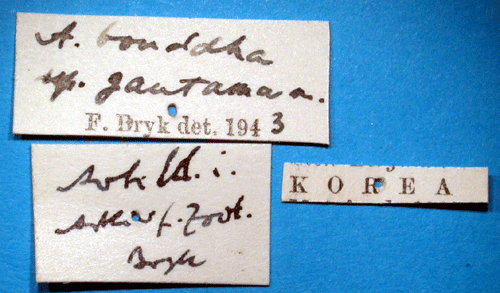 A. bouddha
sp. gautama n.
F. Bryk det. 1943
Arkiv f. Zool.
Bryk
KOREA